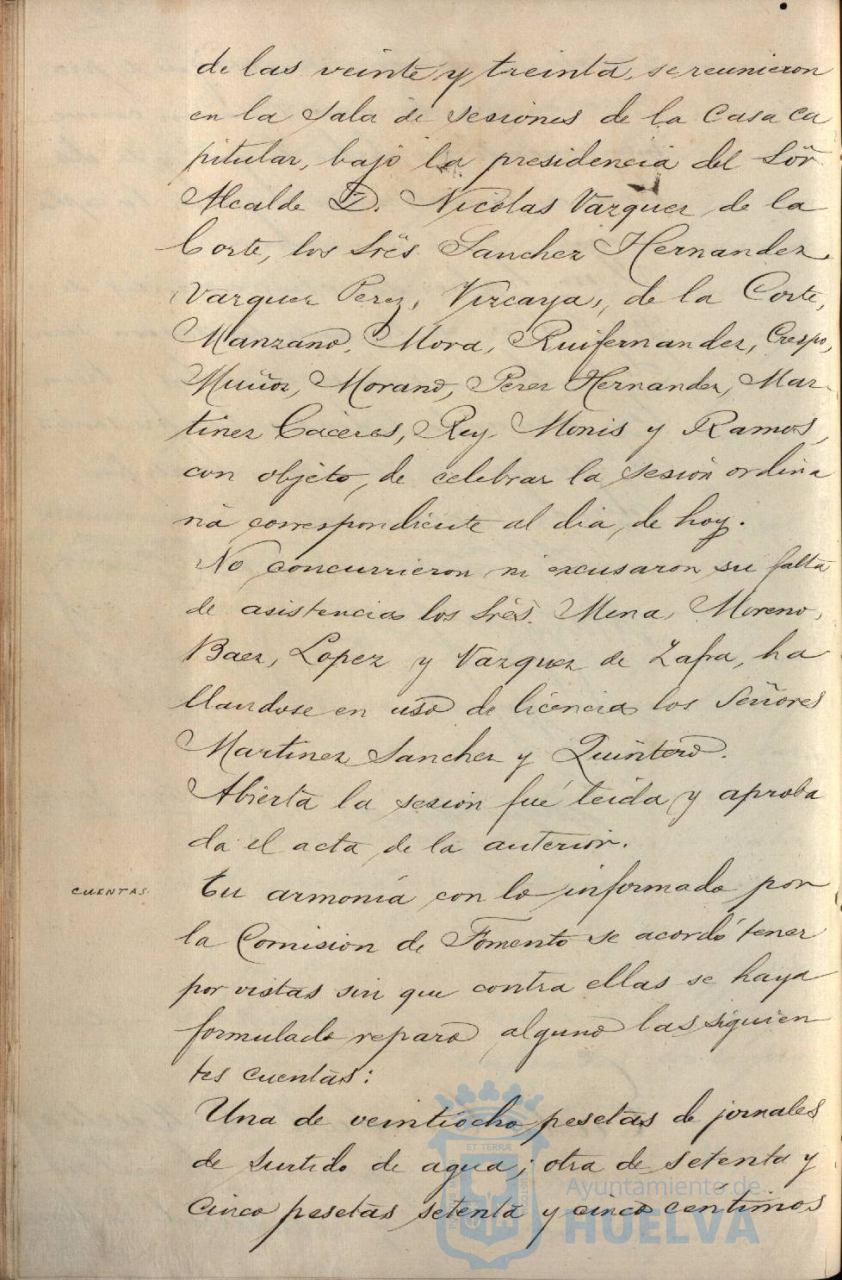 de las veinte y treinta, se reunieron
en la sala de sesiones de la Casa ca
pitular, bajo la presidencia del Sör
Alcalde D. Nicolas Vazquez de la
Corte, los Srës Sanchez Hernandez,
Vazquez Perez, Vizcaya, de la Corte,
Manzano, Mora, Ruifernandez, Crespo,
Muñoz, Morano, Perez Hernandez, Mar-
tinez Cáceres, Rey, Monis y Ramos,
con objeto, de celebrar la sesión ordina
ria correspondiente al dia, de hoy.
No concurrieron ni excusaron su falta
de asistencia los Srës. Mena, Moreno,
Baez, Lopez y Vazquez de Zafra, ha
llandose en uso de licencia los Señores
Martinez Sanchez y Quintero.
Abierta la sesión fué leida y aproba
da el acta de la anterior.
CUENTAS.
En armonía con lo informado por
la Comision de Fomento se acordó tener
por vistas sin que contra ellas se haya
formulado reparo alguno las siguien
tes cuentas:
Una de veintiocho pesetas de jornales
de surtido de agua; otra de setenta y
cinco pesetas setenta y cinco céntimos
Ayuntamiento de
HUELVA